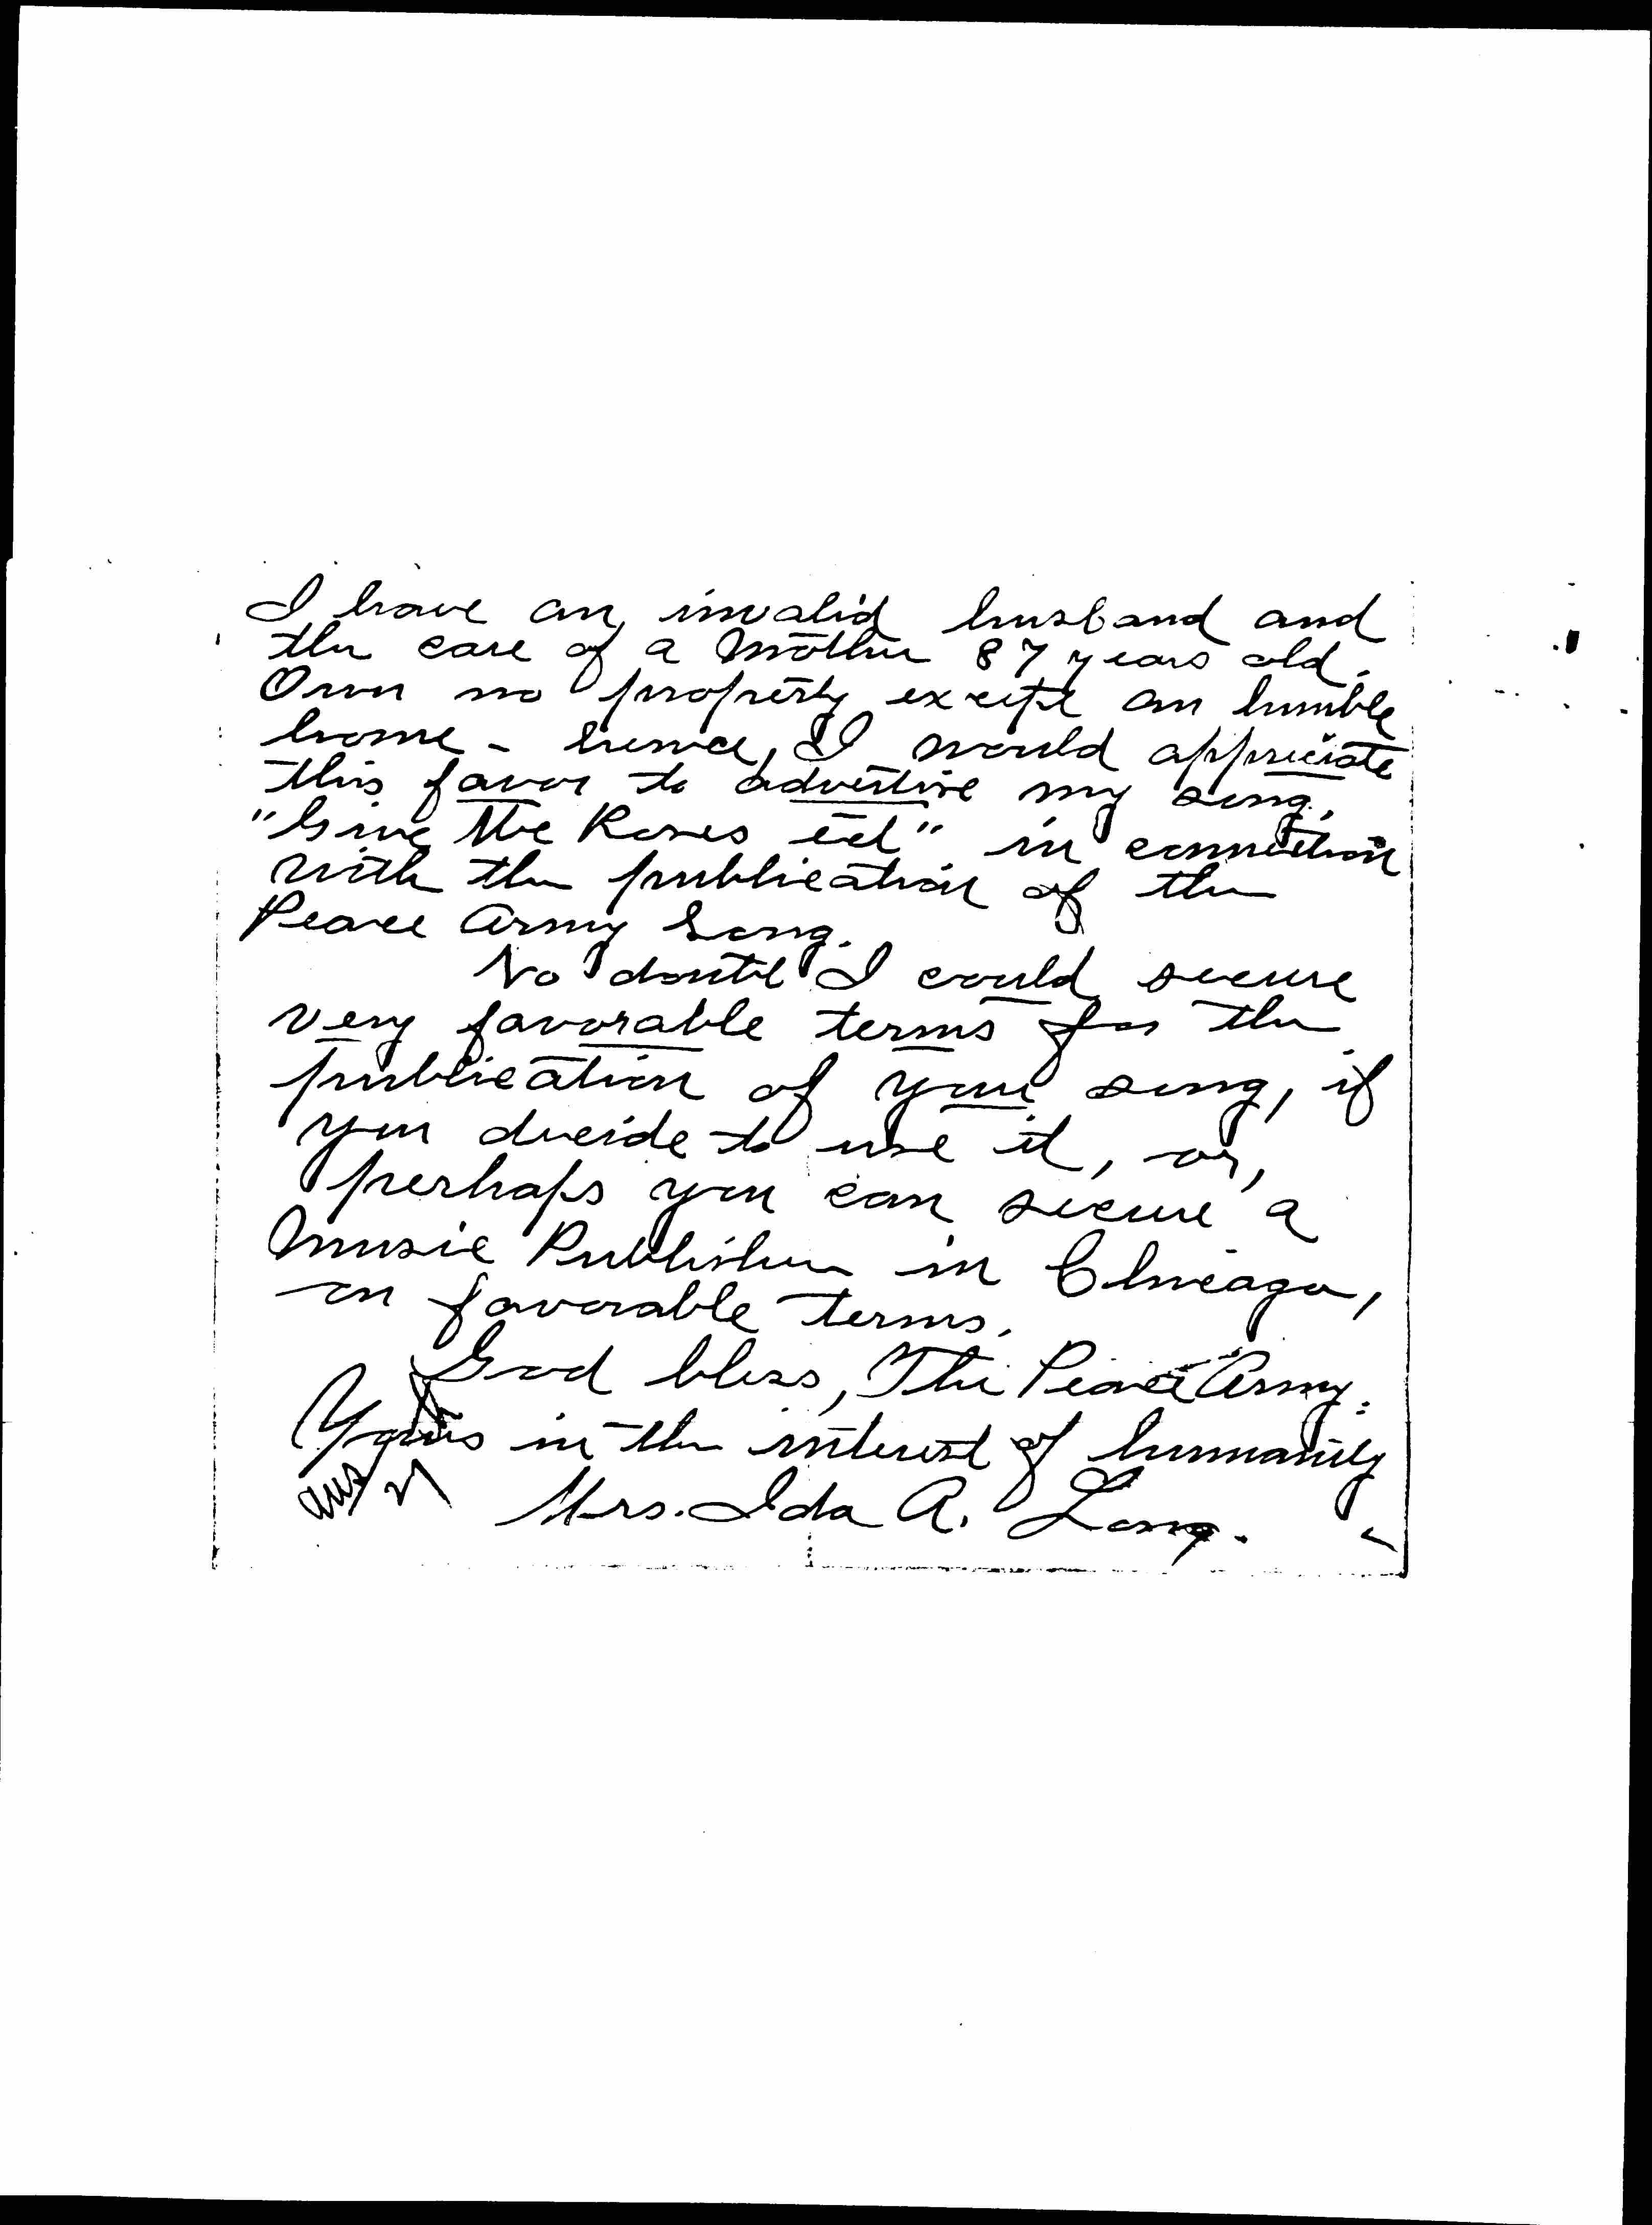 I have an invalid husband and
the care of a Mother 87 years old.
Own no property except an humble
home - hence, I would appreciate
this favor to advertise my song,
"Give the Roses" in connection
with the publication of the
Peace Army Song.
No doubt I could secure
very favorable terms for the
publication of your song, if
you decide to use it, or,
perhaps you can secure a
Music Publisher in Chicago,
on favorable terms.
God bless, The Peace Army.
Yours in the interest of humanity
Mrs. Ida A. Long.